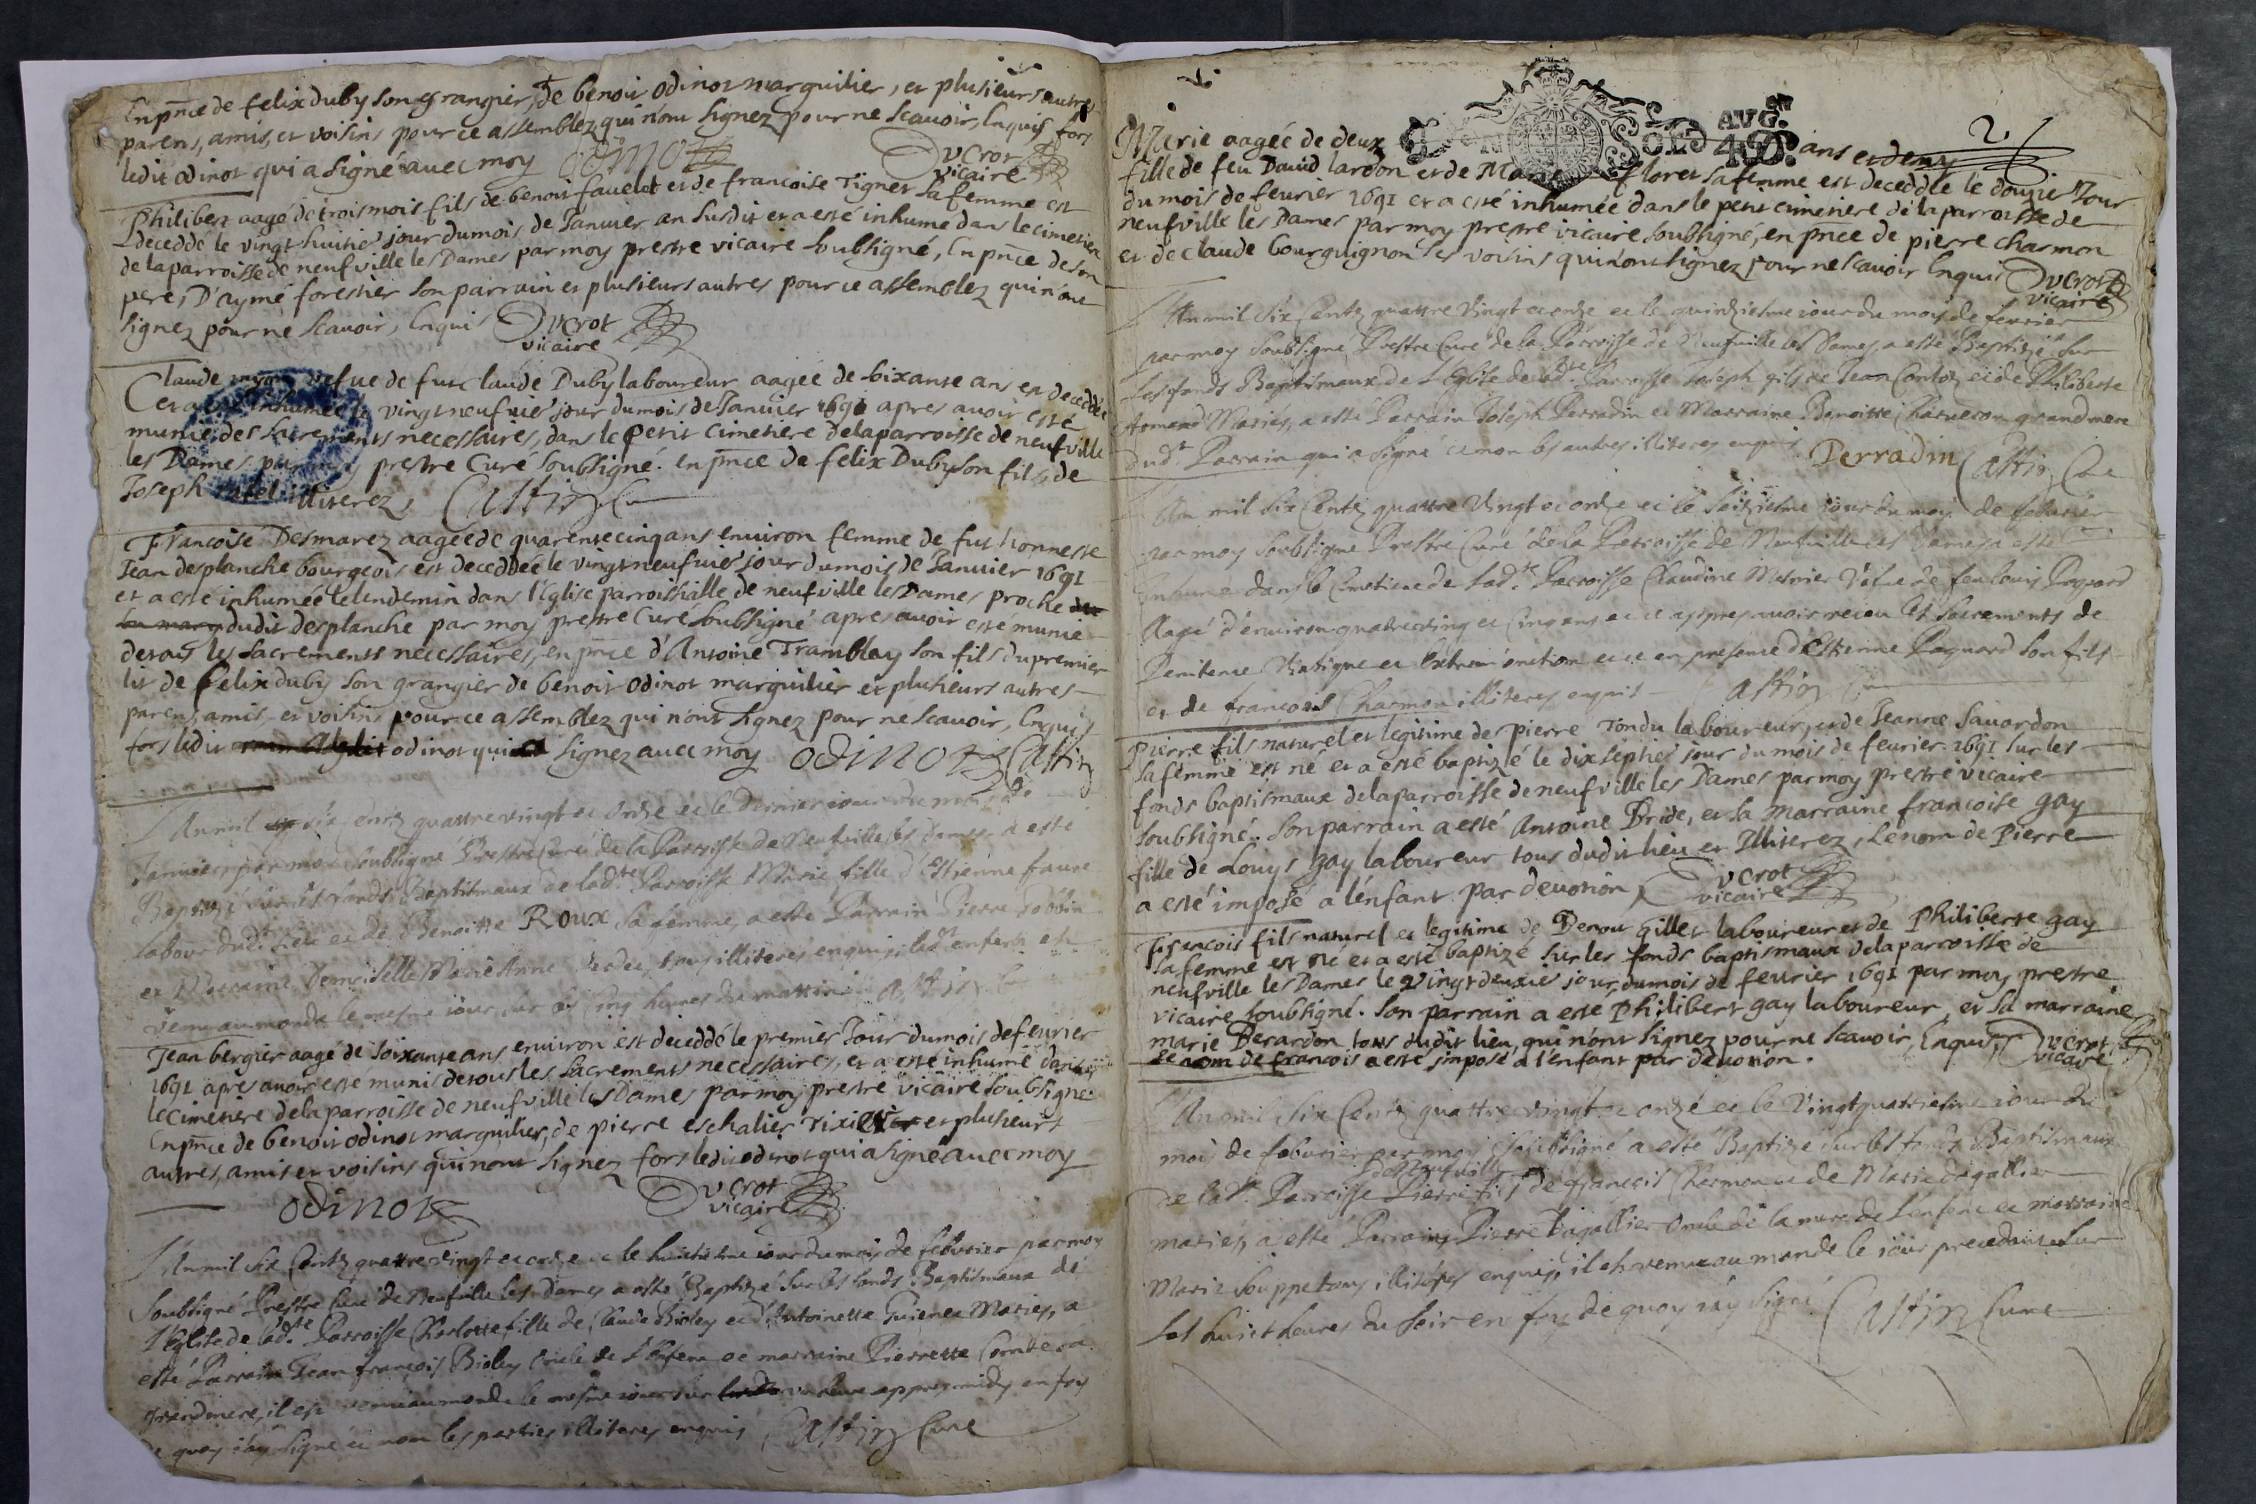 En pñce de felix duby son grangier, de benoit odinot marguilier, et plusieurs autres
parens, amis, et voisins pour ce assemblez qui n'ont signez pour ne scavoir, Enquis fors
ledit odinot qui a signé avec moy odinot Ducrot
vicaire
Philibert aagé de trois mois fils de benoit favelot et de francoise Tignet sa femme est
deceddé le vingt huitie jour du mois de Janvier an susdit et a esté inhumé dans le cimetiere
de la parroisse de neufville les Dames par moy prestre vicaire soubsigné, En pñce de son
pere, D'aymé forestier son parrain et plusieurs autres pour ce assemblez qui n'ont
signez pour ne scavoir, Enquis Ducrot
vicaire
Claude vefue de fut claude Duby laboureur aagée de soixante ans est deceddée
et a esté inhumée le vingt neufvie jour du mois de Janvier 1691 apres avoir esté
munie des sacrements necessaires, dans le petit cimetiere de la parroisse de neufville
les Dames par moy prestre Curé soubsigné. en pñce de felix Duby son fils, de
Joseph illiterez, Castin
Francoise Desmarez aagée de quarente cinq ans environ femme de fut honneste
Jean desplanche bourgeois est deceddée le vingt neufvie jour du mois de Janvier 1691
et a esté inhumée le lendemin dans l'Eglise parroissialle de neufville les Dames proche
dudit desplanche par moy prestre Curé soubsigné apres avoir esté munie
de tous les sacrements necessaires, en pñce d'Antoine Tramblay son fils du premier
lit de felix duby son grangier de benoit odinot marguilier et plusieurs autres
parens, amis, et voisins pour ce assemblez qui n'ont signez pour ne scavoir, Enquis
fors ledit odinot qui signez avec moy odinot Castin
L'An mil six Centz quattre vingt et onze et le Dernier iour du mois de
Janvier par moy soubsigné Prestre Curé de la Parroisse de Neufville les dames a esté
Baptizé sur les fonds Baptismaux de ladte Parroisse Marie fille d'Estienne faure
labour dudt lieu et de Benoitte Roux sa femme, a esté Parrain Pierre
et Marraine Demoiselle Marie Anne tous illiteres enquis, led enfent est
venu au monde le mesme iour, sur les cinq heures du mattin Castin
Jean bergier aagé de soixante ans environ est deceddé le premier Jour du mois de fevrier
1691 apres avoir esté munis de tous les sacrements necessaires, et a esté inhumé dans
le cimetiere de la parroisse de neufville les Dames par moy prestre vicaire soubsigné
En pñce de benoit odinot marguilier, de pierre eschalier et plusieurs
autres, amis et voisins qui n'ont signez fors ledit odinot qui a signé avec moy
odinot Ducrot
vicaire
L'An mil six Centz quattre vingt et onze et le huictiesme iour du mois de febvrier par moy
soubsigné Prestre Curé de Neufville les dames a esté Baptizé sur les fonds Baptismaux de
l'Eglise de ladte Parroisse Charlotte fille de Claude Bioley et d'Antoinette Mariez, a
esté Parrain Jean françois Bioley Oncle de l'Enfent et marraine Pierrette
grandmere, il est venu au monde le mesme iour sur appres midy en foy
de quoy i'ay signé et non les parties illiteres enquis Castin Curé
2
AVG.
SOLD
Marie aagée de deux ans et demy
fille de feu David lardon et de Marie floret sa femme est deceddée le douzie Jour
du mois de fevrier 1691 et a esté inhumée dans le petit cimetiere de la parroisse de
neufville les Dames par moy prestre vicaire soubsigné, en pñce de pierre charmon
et de Claude bourguignon ses voisins qui n'ont signez pour ne scavoir Enquis Ducrot
vicaire
L'An mil six Centz quattre vingt et onze et le quinziesme iour du mois de fevrier
par moy soubsigné Prestre Curé de la Parroisse de Neufville les Dames, a esté Baptizé sur
les fonds Baptismaux de l'Eglise de ladte Parroisse Joseph fils de Jean et de Philiberte
Mariés, a esté Parrain Joseph Perradin et Marraine Benoitte grandmere
dudt Parrain qui a signé et non les autres illiteres enquis Perradin Castin
L'An mil six Centz quattre vingt et onze et le seiziesme iour du mois de febvrier
par moy soubsigné Prestre Curé de la Parroisse de Neufville les Dames a esté
Inhumé dans le Cimetiere de ladte Parroisse Claudine Vefue de feu louis
Aagé d'environ quatre vingt et cinq ans et ce appres avoir receu les Sacrements de
Penitence Viatique et Extrem'onction et ce en presence d'Estienne son fils
et de francois Charmon illiteres enquis Castin
Pierre fils naturel et legitime de pierre Tondu laboureur, et de Jeanne Savardon
sa femme est né et a esté baptizé le dix septie jour du mois de fevrier 1691 sur les
fonds baptismaux de la parroisse de neufville les Dames par moy prestre vicaire
soubsigné. son parrain a esté Antoine Bride, et sa marraine francoise gay
fille de Louys gay laboureur tous dudit lieu et Illiterez, Le nom de Pierre
a esté imposé a l'enfant par devotion, Ducrot
vicaire
Francois fils naturel et legitime de Benoit Gillet laboureur et de Philiberte gay
sa femme est né et a esté baptizé sur les fonds baptismaux de la parroisse de
neufville les Dames le vingt deuxie jour du mois de fevrier 1691 par moy prestre
vicaire soubsigné. son parrain a esté Philibert gay laboureur, et sa marraine
marie Berardon tous dudit lieu, qui n'ont signez pour ne scavoir, Enquis, Ducrot
vicaire
Le nom de francois a esté imposé a l'enfant par devotion.
L'An mil Six Centz quattre vingt et onze et le Vingt quattriesme iour du
mois de febvrier par moy soubsigné a esté Baptizé sur les fonds Baptismaux
de ladte Parroisse de Neufville Pierre fils de françois Charmon et de Marie dagallier
mariés, a esté Parrain Pierre Dagallier Oncle de la mere de l'enfent et marraine
Marie tous illiteres enquis, il est venu au monde le iour precedant sur
les huict heures du soir en foy de quoy i'ay signé Castin Curé